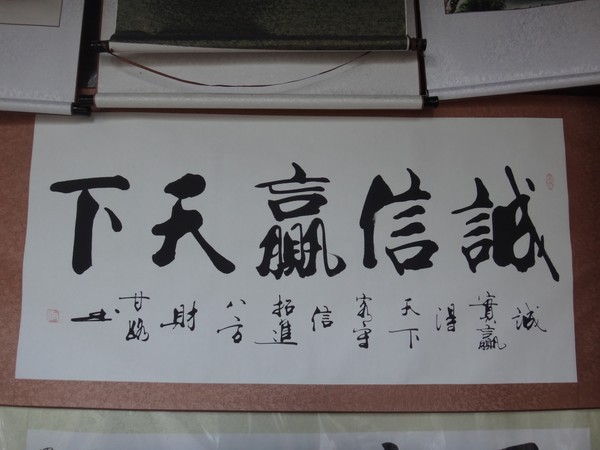 誠信贏天下
誠實贏得天下客守信招進八方財甘书